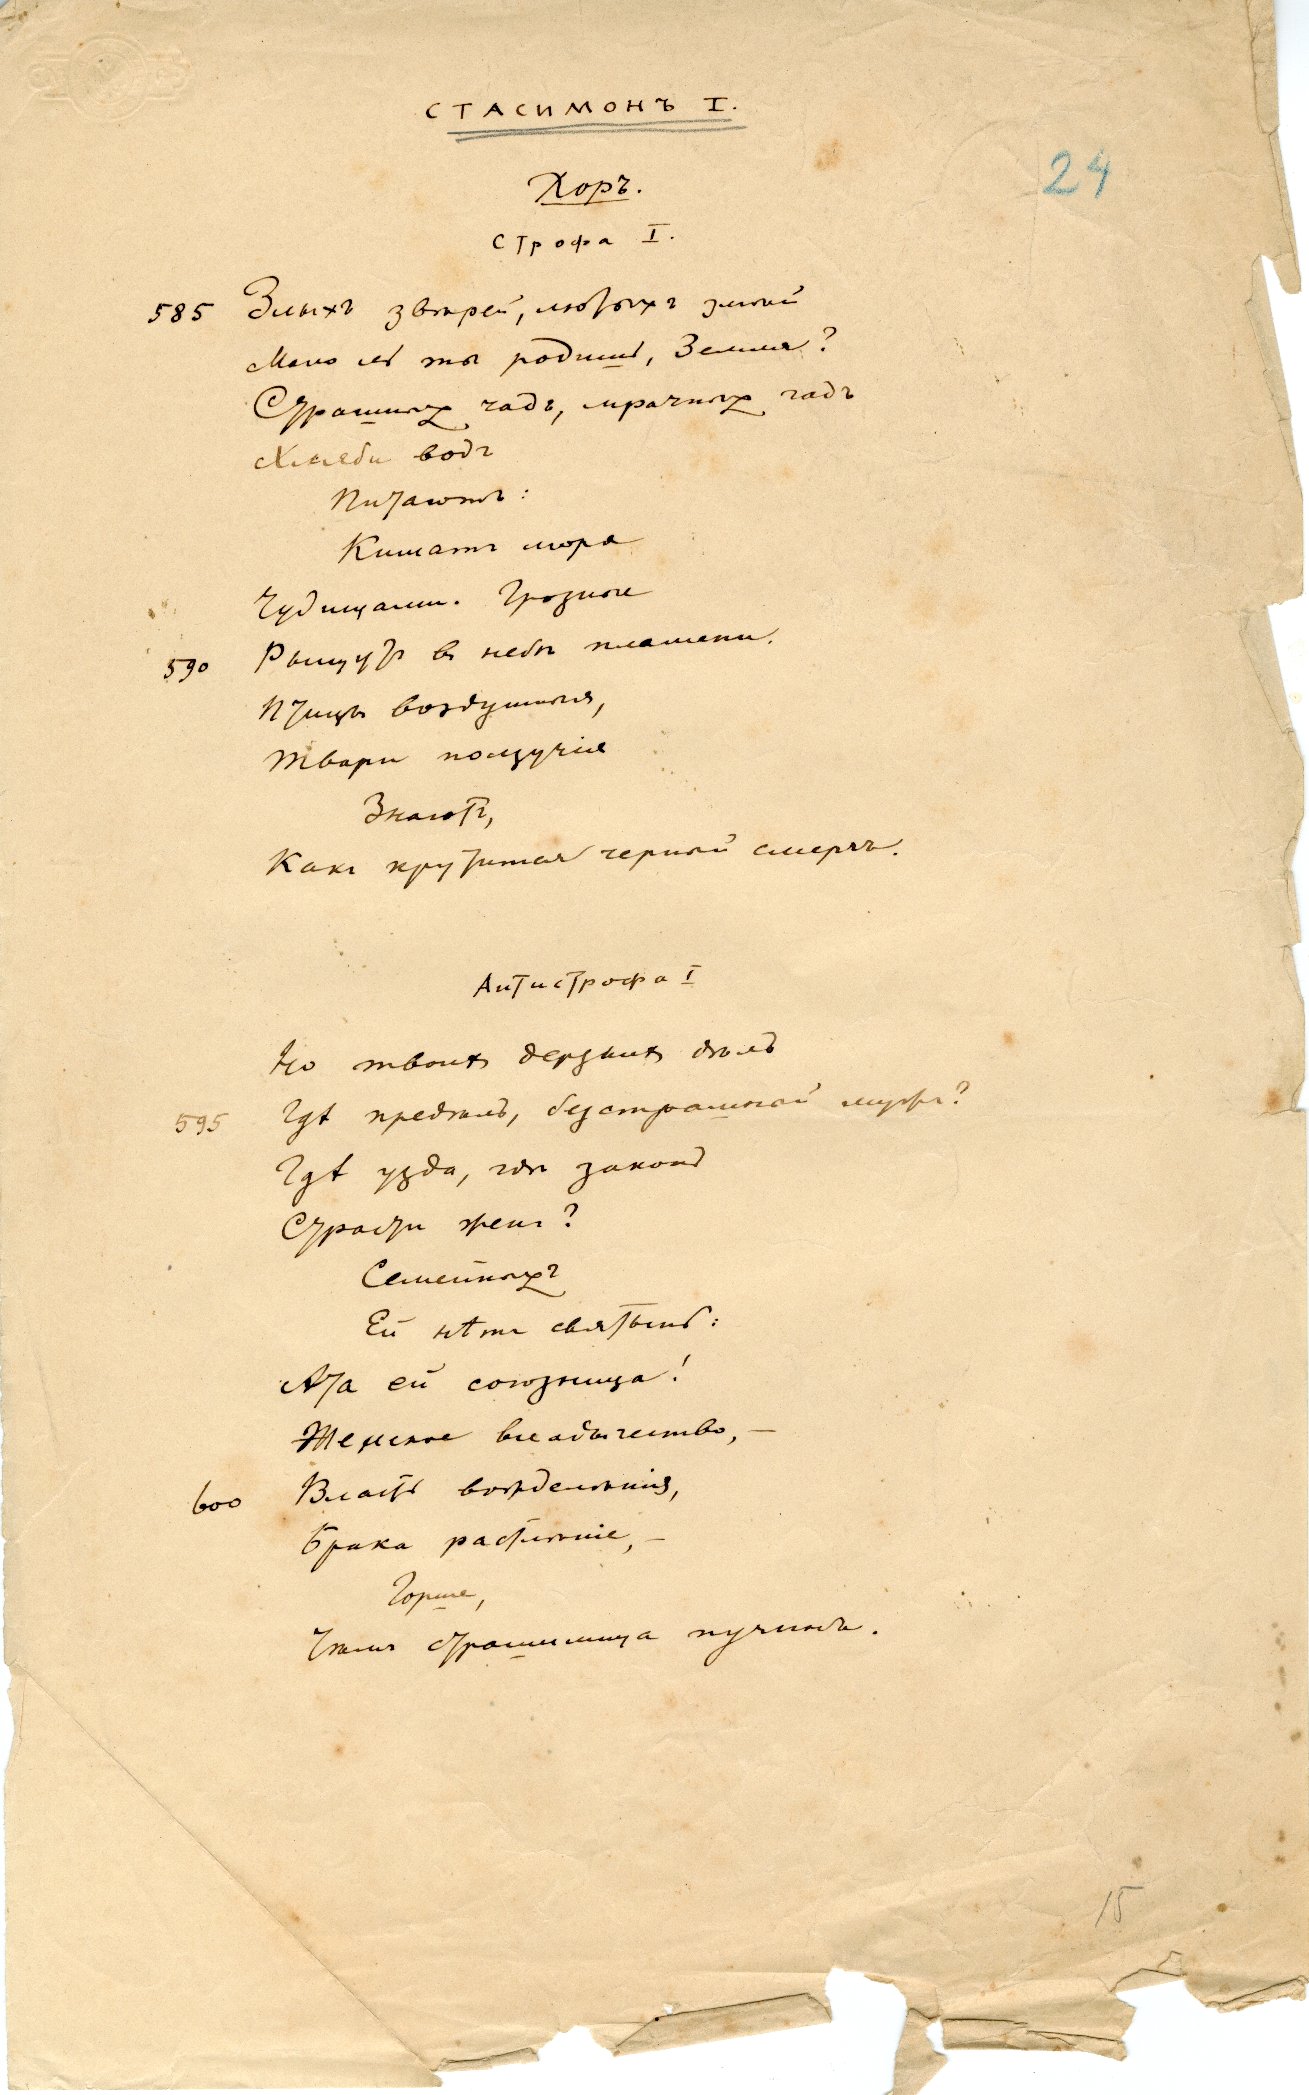 СТАСИМОНЪ I.
24
Хоръ.
Строфа I.
585 Злыхъ звѣрей, лютыхъ змѣй
Мало ль ты родишь, Земля?
Страшныхъ чадъ, мрачныхъ гадъ
Хляби водъ
Питаютъ:
Кишатъ моря
Чудищами. Грозные
590 Рыщутъ въ небѣ пламени.
Птицы воздушныя,
Твари ползучія
Знаютъ,
Какъ крутится черный смерчъ.
Антистрофа I
Но твоихъ дерзкихъ дѣлъ
595 Гдѣ предѣлъ, безстрашный мужъ?
Гдѣ узда, гдѣ законъ
Страсти женъ?
Семейныхъ
Ей нѣтъ святынь:
Ата ей союзница!
Женское владычество, —
600 Власть вожделѣнія,
Брака растлѣніе, —
Горше,
Чѣмъ страшилища пучинъ.
15